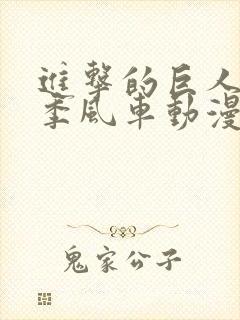 進擊的巨人
季風車動漫
鬼家公子